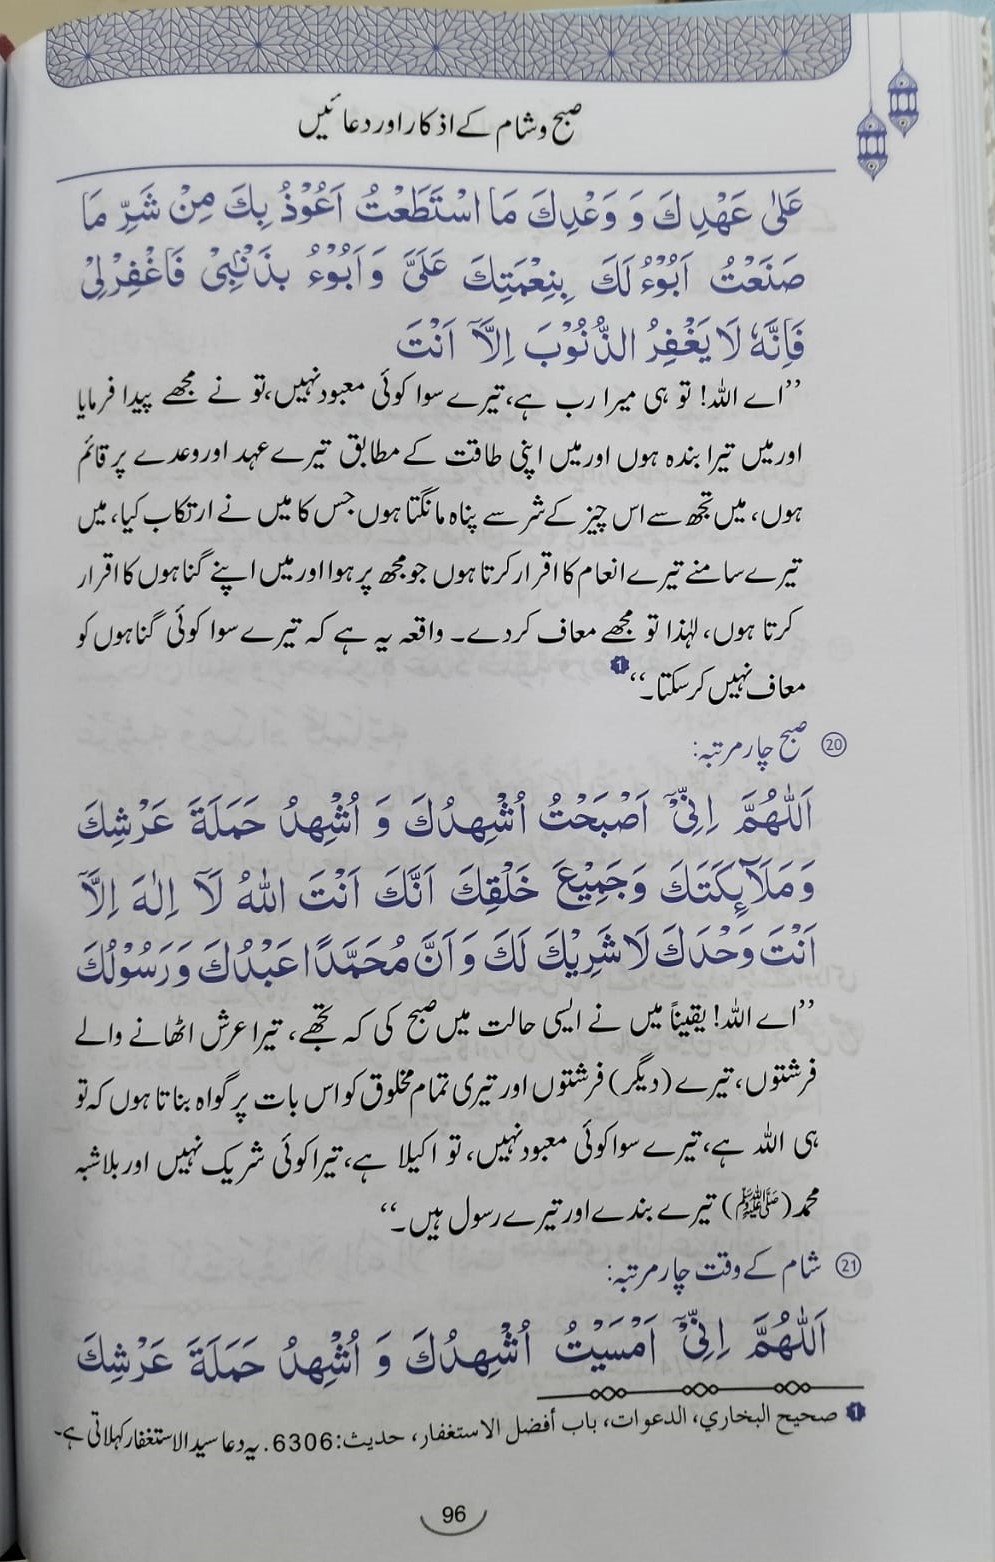 صبح و شام کے اذکار اور دعائیں
عَلٰی عَهْدِكَ وَ وَعْدِكَ مَا اسْتَطَعْتُ اَعُوْذُ بِكَ مِنْ شَرِّ مَا
صَنَعْتُ اَبُوْءُ لَكَ بِنِعْمَتِكَ عَلَیَّ وَ اَبُوْءُ بِذَنْۢبِیْ فَاغْفِرْ لِیْ
فَاِنَّهٗ لَا یَغْفِرُ الذُّنُوْبَ اِلَّاۤ اَنْتَ
’’اے اللہ! تو ہی میرا رب ہے، تیرے سوا کوئی معبود نہیں، تو نے مجھے پیدا فرمایا
اور میں تیرا بندہ ہوں اور میں اپنی طاقت کے مطابق تیرے عہد اور وعدے پر قائم
ہوں، میں تجھ سے اس چیز کے شر سے پناہ مانگتا ہوں جس کا میں نے ارتکاب کیا، میں
تیرے سامنے تیرے انعام کا اقرار کرتا ہوں جو مجھ پر ہوا اور میں اپنے گناہوں کا اقرار
کرتا ہوں، لہٰذا تو مجھے معاف کر دے۔ واقعہ یہ ہے کہ تیرے سوا کوئی گناہوں کو
معاف نہیں کر سکتا۔‘‘ 1
20 صبح چار مرتبہ:
اَللّٰهُمَّ اِنِّیْۤ اَصْبَحْتُ اُشْهِدُكَ وَ اُشْهِدُ حَمَلَةَ عَرْشِكَ
وَ مَلَآئِكَتَكَ وَ جَمِیْعَ خَلْقِكَ اَنَّكَ اَنْتَ اللّٰهُ لَاۤ اِلٰهَ اِلَّاۤ
اَنْتَ وَحْدَكَ لَا شَرِیْكَ لَكَ وَ اَنَّ مُحَمَّدًا عَبْدُكَ وَ رَسُوْلُكَ
’’اے اللہ! یقیناً میں نے ایسی حالت میں صبح کی کہ تجھے، تیرا عرش اٹھانے والے
فرشتوں، تیرے (دیگر) فرشتوں اور تیری تمام مخلوق کو اس بات پر گواہ بناتا ہوں کہ تو
ہی اللہ ہے، تیرے سوا کوئی معبود نہیں، تو اکیلا ہے، تیرا کوئی شریک نہیں اور بلاشبہ
محمد (ﷺ) تیرے بندے اور تیرے رسول ہیں۔‘‘
21 شام کے وقت چار مرتبہ:
اَللّٰهُمَّ اِنِّیْۤ اَمْسَیْتُ اُشْهِدُكَ وَ اُشْهِدُ حَمَلَةَ عَرْشِكَ
1 صحيح البخاري، الدعوات، باب أفضل الاستغفار، حدیث: 6306. یہ دعا سید الاستغفار کہلاتی ہے۔
96